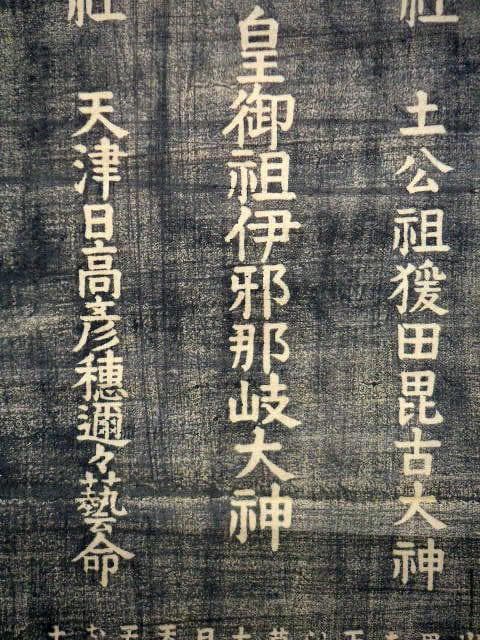 社
土公祖猨田毘古大神
皇御祖伊邪那岐大神
社
天津日高彦穗邇々藝命